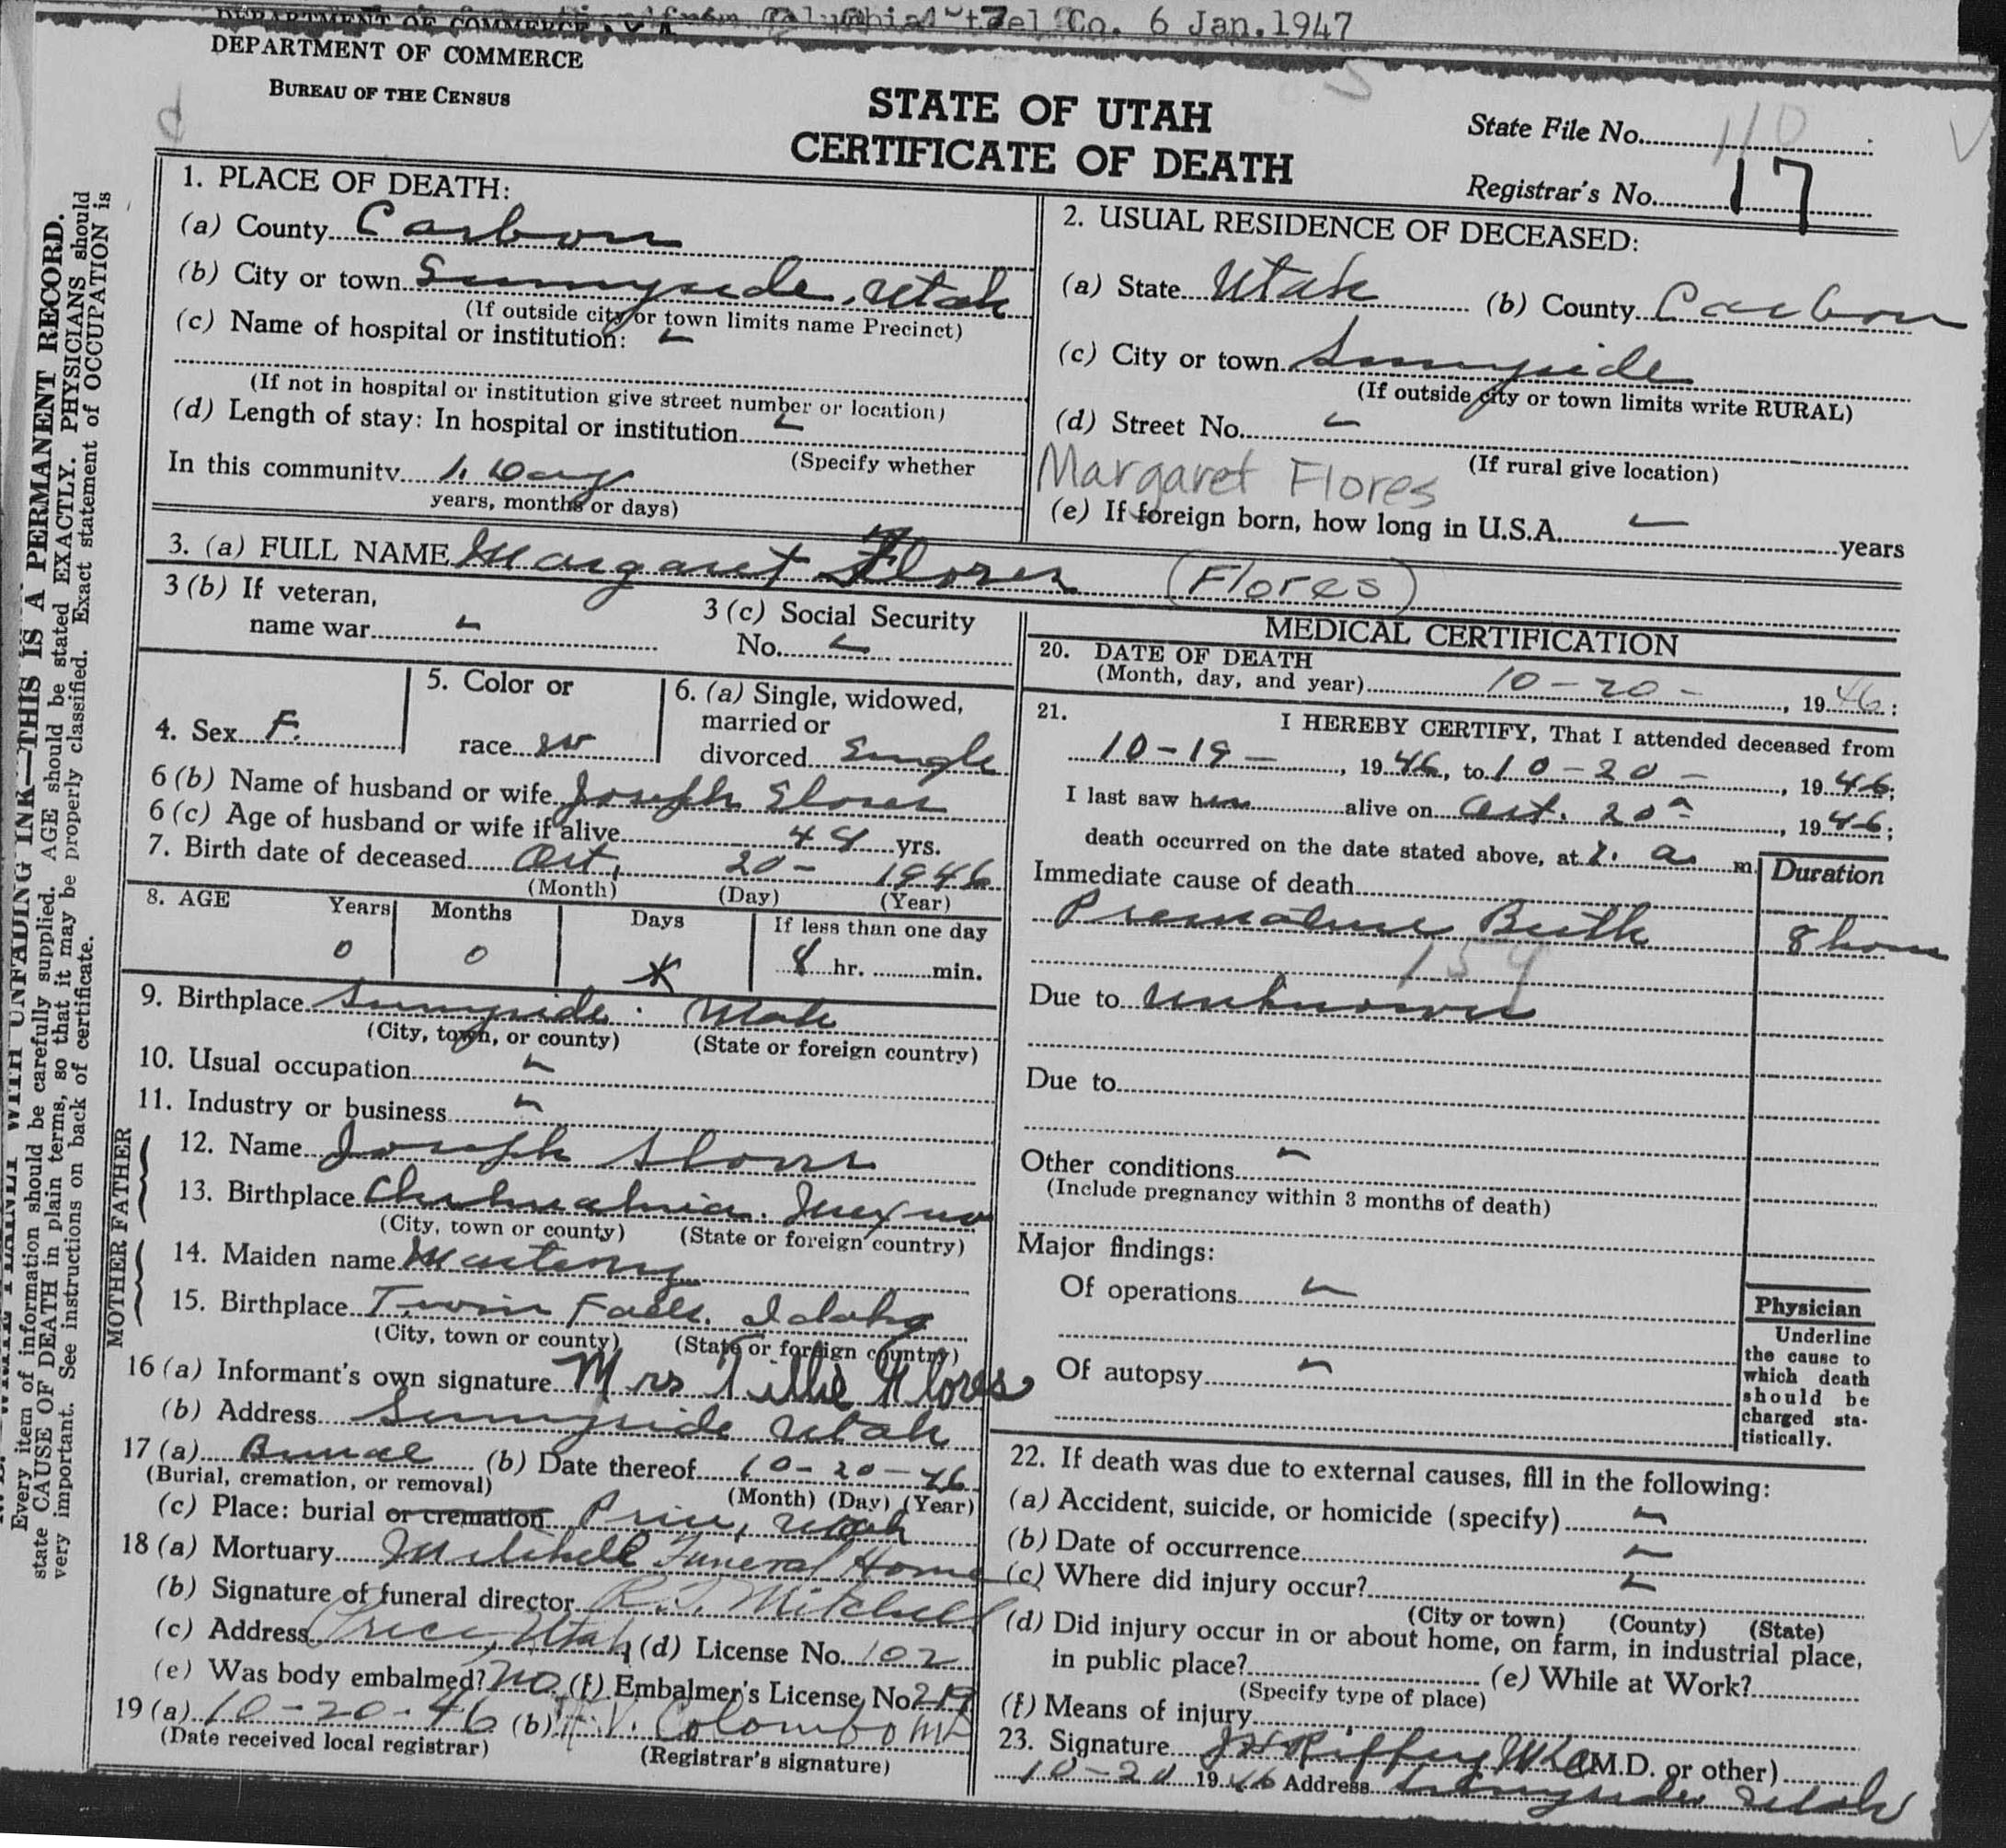 Co. 6 Jan. 1947
DEPARTMENT OF COMMERCE
BUREAU OF THE CENSUS
STATE OF UTAH
CERTIFICATE OF DEATH
State File No. 110
Registrar's No. 17
1. PLACE OF DEATH:
(a) County Carbon
(b) City or town Sunnyside, Utah
(If outside city or town limits name Precinct)
(c) Name of hospital or institution:
(If not in hospital or institution give street number or location)
(d) Length of stay: In hospital or institution
(Specify whether
In this community 1. Day
years, months or days)
2. USUAL RESIDENCE OF DECEASED:
(a) State Utah (b) County Carbon
(c) City or town Sunnyside
(If outside city or town limits write RURAL)
(d) Street No.
(If rural give location)
Margaret Flores
(e) If foreign born, how long in U.S.A. years
3. (a) FULL NAME Margaret Flores (Flores)
3 (b) If veteran,
name war
3 (c) Social Security
No.
4. Sex F.
5. Color or
race w
6. (a) Single, widowed,
married or
divorced Single
6 (b) Name of husband or wife Joseph Flores
6 (c) Age of husband or wife if alive yrs.
7. Birth date of deceased Oct. 20 - 1946
(Month) (Day) (Year)
8. AGE Years Months Days If less than one day
0 0 8 hr. min.
9. Birthplace Sunnyside. Utah
(City, town, or county) (State or foreign country)
10. Usual occupation
11. Industry or business
FATHER
12. Name Joseph Flores
13. Birthplace Chihuahua. Mexico
(City, town or county) (State or foreign country)
MOTHER
14. Maiden name
15. Birthplace Twin Falls. Idaho
(City, town or county) (State or foreign country)
16 (a) Informant's own signature Mrs Tillie Flores
(b) Address Sunnyside Utah
17 (a) Burial (b) Date thereof 10-20-46
(Burial, cremation, or removal) (Month) (Day) (Year)
(c) Place: burial or cremation Price, Utah
18 (a) Mortuary Mitchell Funeral Home
(b) Signature of funeral director R.J. Mitchell
(c) Address Price, Utah (d) License No. 102
(e) Was body embalmed? no (f) Embalmer's License No. 219
19 (a) 10-20-46 (b) Colombo MD
(Date received local registrar) (Registrar's signature)
MEDICAL CERTIFICATION
20. DATE OF DEATH
(Month, day, and year) 10-20-, 1946;
21. I HEREBY CERTIFY, That I attended deceased from
10-19-, 1946, to 10-20-, 1946;
I last saw her alive on Oct. 20, 1946;
death occurred on the date stated above, at a. m.
Immediate cause of death Duration
Premature Birth 8 hours
154
Due to Unknown
Due to
Other conditions
(Include pregnancy within 3 months of death)
Major findings:
Of operations
Of autopsy
Physician
Underline
the cause to
which death
should be
charged sta-
tistically.
22. If death was due to external causes, fill in the following:
(a) Accident, suicide, or homicide (specify)
(b) Date of occurrence
(c) Where did injury occur?
(City or town) (County) (State)
(d) Did injury occur in or about home, on farm, in industrial place,
in public place? (e) While at Work?
(Specify type of place)
(f) Means of injury
23. Signature (M.D. or other)
10-20 1946 Address Sunnyside Utah
WITH UNFADING INK—THIS IS A PERMANENT RECORD.
Every item of information should be carefully supplied. AGE should be stated EXACTLY. PHYSICIANS should
state CAUSE OF DEATH in plain terms, so that it may be properly classified. Exact statement of OCCUPATION is
very important. See instructions on back of certificate.